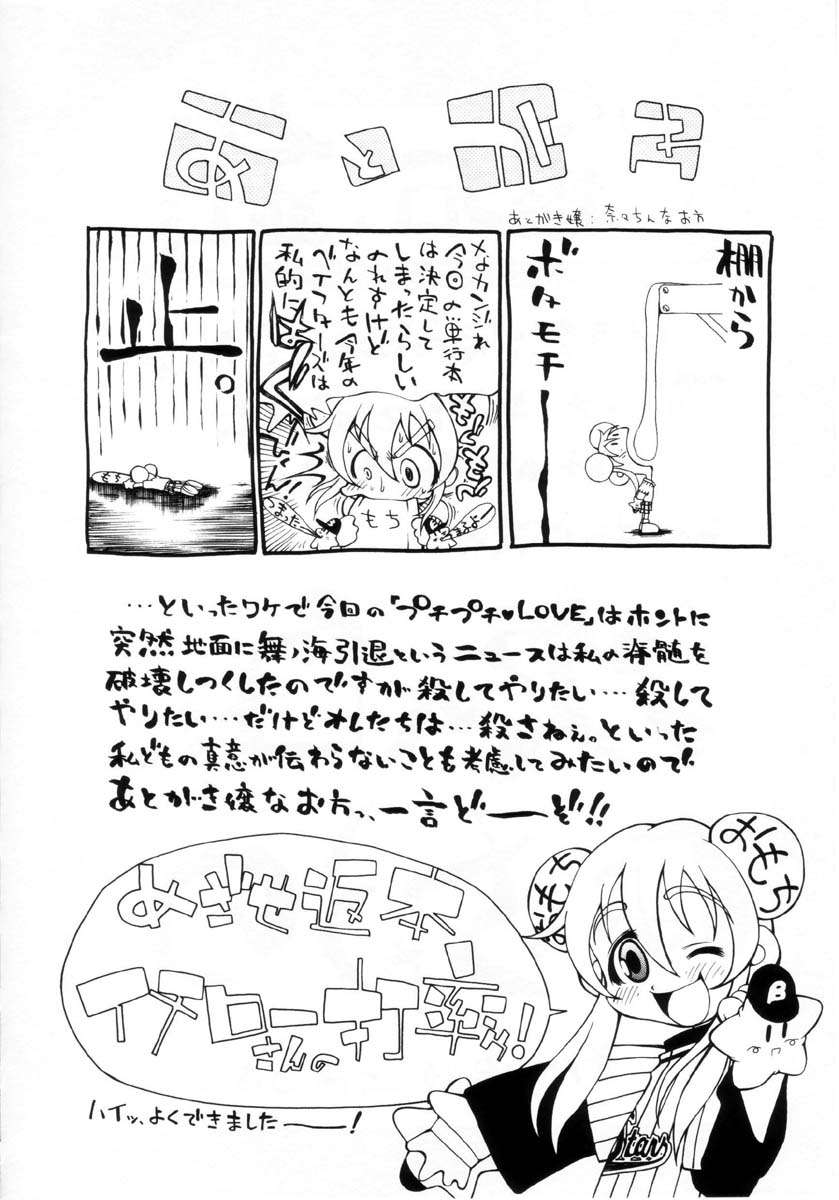 あとがき
あとがき嬢:奈々ちんなお方
棚から
ボタモチー
なカンジれ
今回の単行本
は決定して
しまったらしい
のれすけど
なんとも今年の
ベイスターズは
私的に
もち
つまった
止。
もち
…といったワケで今回の「プチプチ♥LOVE」はホントに
突然地面に舞ノ海引退というニュースは私の脊髄を
破壊しつくしたのですが殺してやりたい…殺して
やりたい…だけどオレたちは…殺さねぇ。といった
私どもの真意が伝わらないことも考慮してみたいので
あとがき嬢なお方っ、一言どーぞ!!
おもち
おもち
めざせ返本
イチローさんの打率!!
B
Stars
ハイッ、よくできましたー!